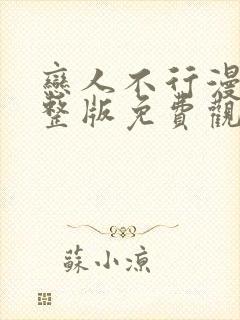 戀人不行漫
整版免費觀
蘇小涼